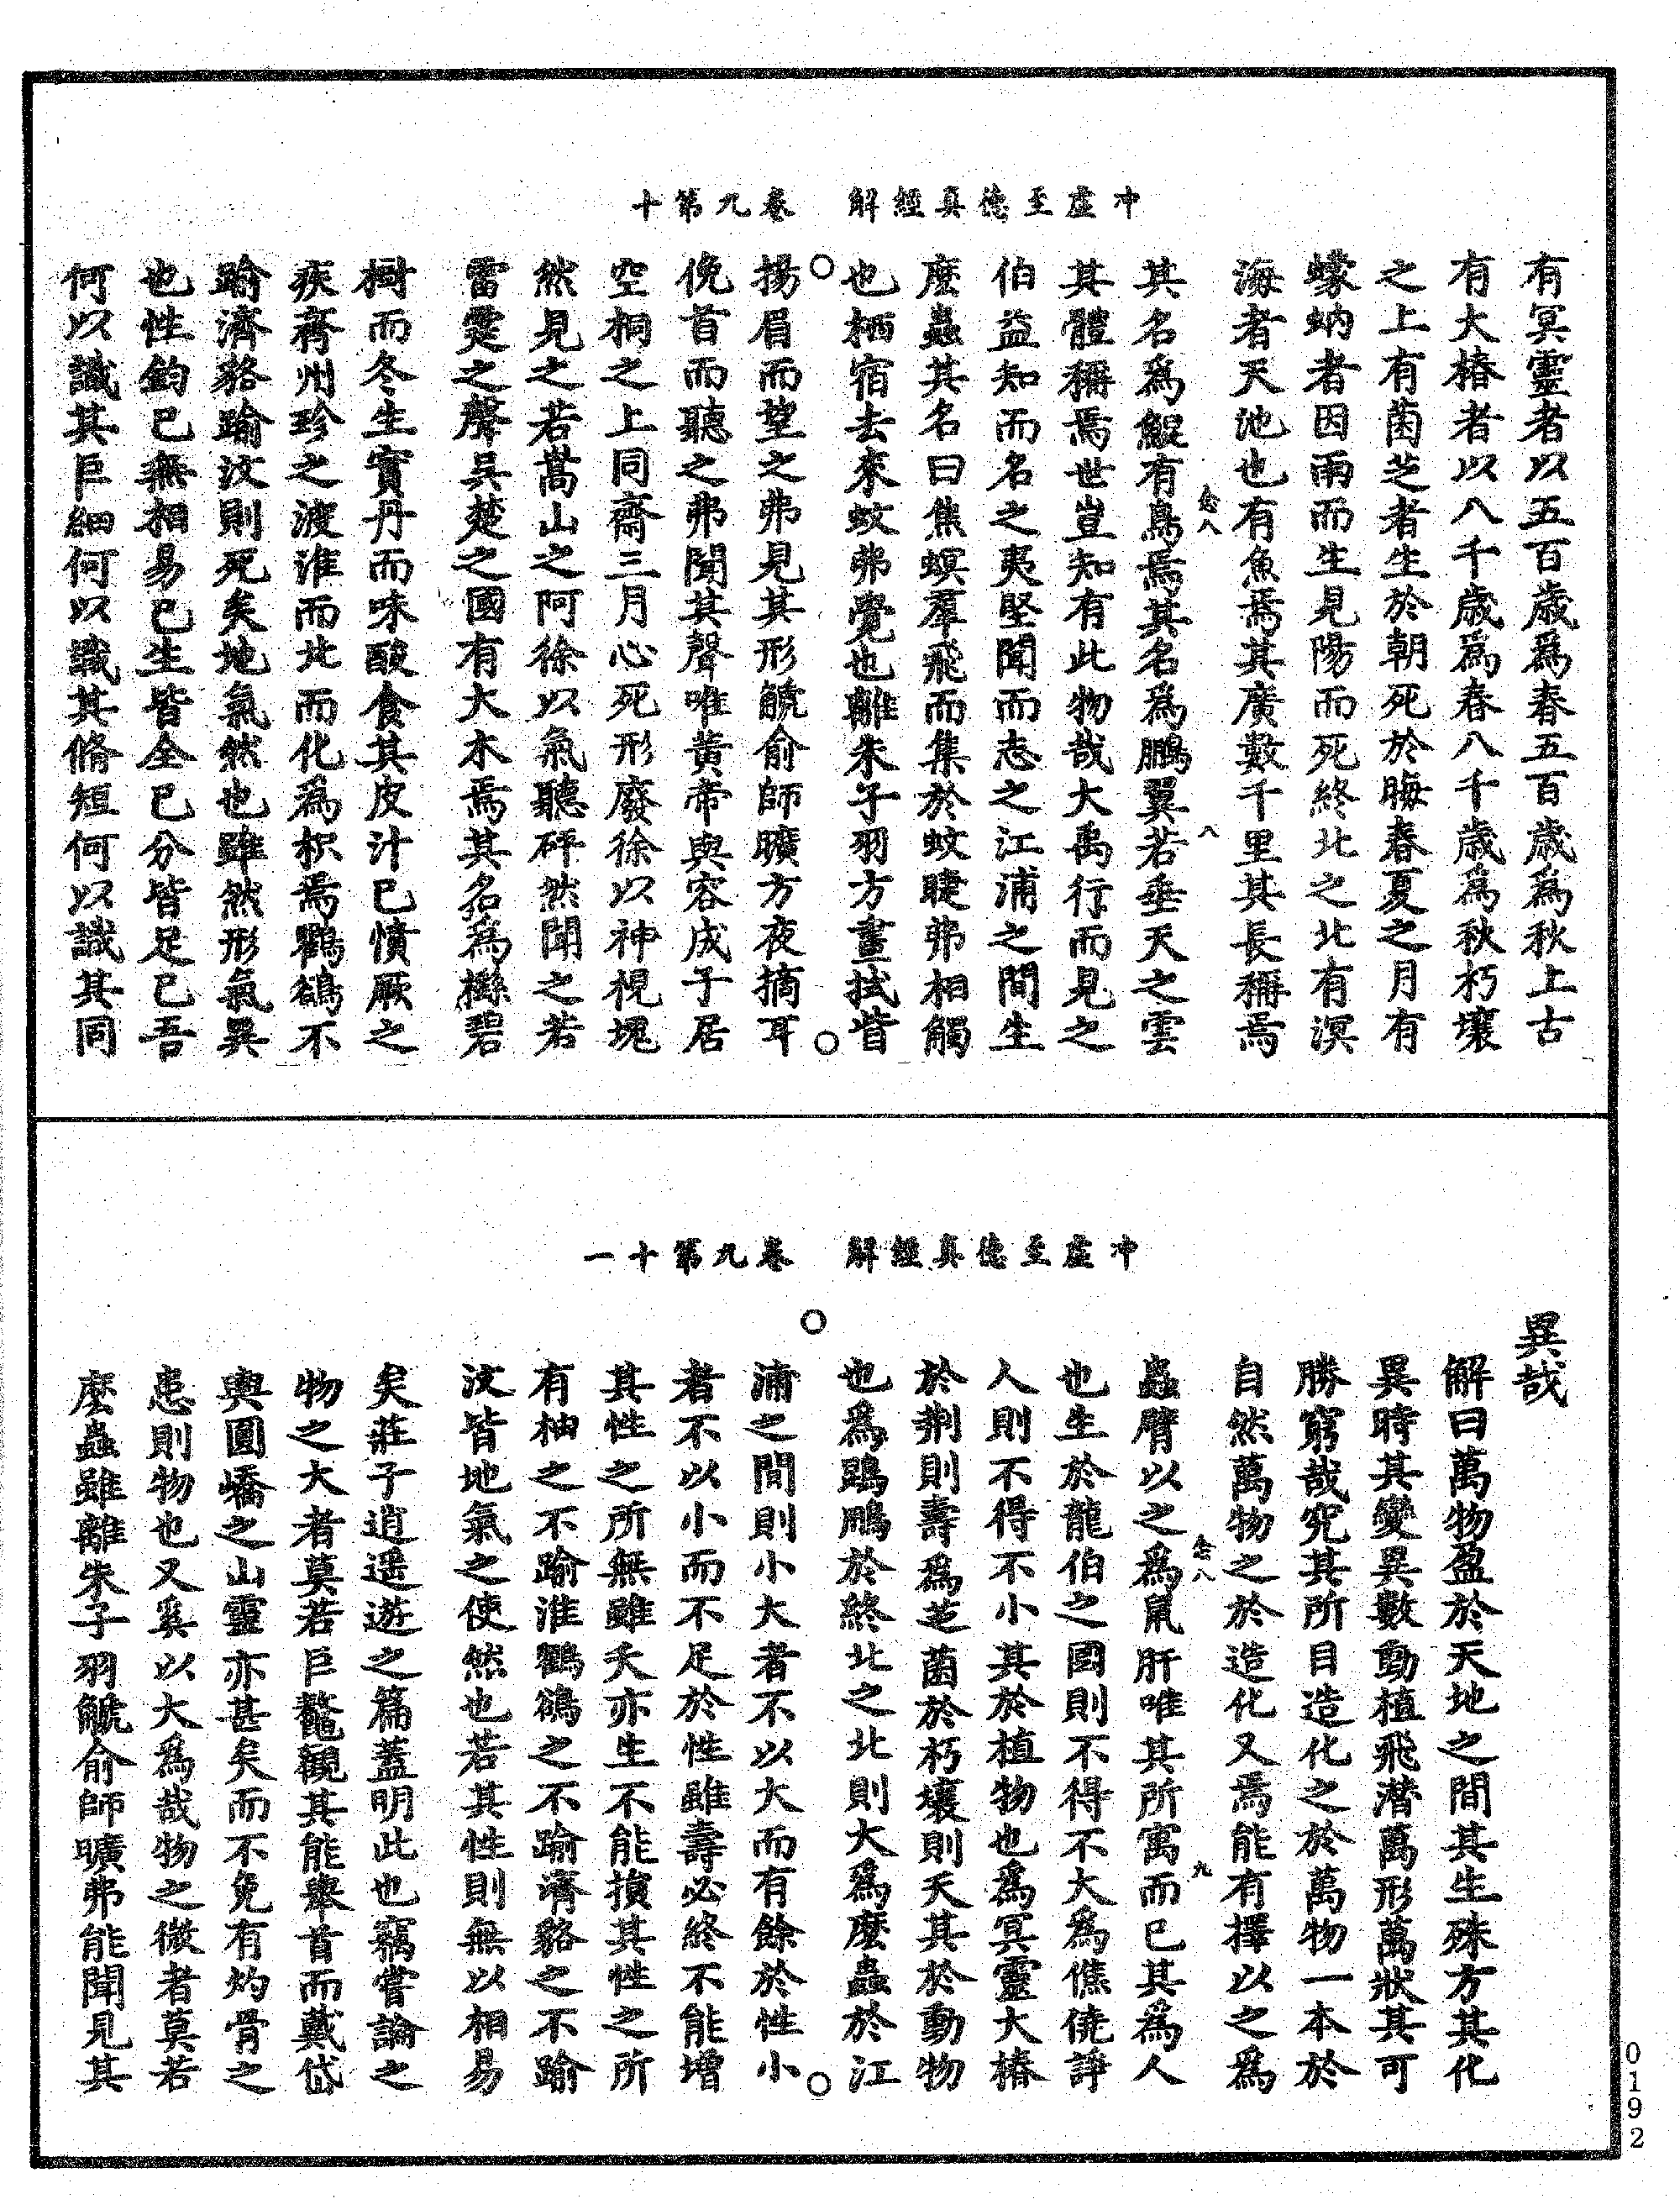 冲虛至德真經解　卷九第十
有冥靈者以五百歲爲春五百歲爲秋上古
有大椿者以八千歲爲春八千歲爲秋朽壤
之上有菌芝者生於朝死於晦春夏之月有
蠓蚋者因雨而生見陽而死終北之北有溟
海者天池也有魚焉其廣數千里其長稱焉
其名爲鯤有鳥焉其名爲鵬翼若垂天之雲
其體稱焉世豈知有此物哉大禹行而見之
伯益知而名之夷堅聞而志之江浦之間生
麽蟲其名曰焦螟羣飛而集於蚊睫弗相觸
也栖宿去來蚊弗覺也離朱子羽方晝拭眥
揚眉而望之弗見其形䚦俞師曠方夜擿耳
俛首而聽之弗聞其聲唯黃帝與容成子居
空桐之上同齋三月心死形廢徐以神視塊
然見之若嵩山之阿徐以氣聽砰然聞之若
雷霆之聲吳楚之國有大木焉其名爲櫾碧
樹而冬生實丹而味酸食其皮汁已憤厥之
疾齊州珍之渡淮而北而化爲枳焉鸜鵒不
踰濟貉踰汶則死矣地氣然也雖然形氣異
也性鈞已無相易已生皆全已分皆足已吾
何以識其巨細何以識其脩短何以識其同
冲虛至德真經解　卷九第十一
異哉
解曰萬物盈於天地之間其生殊方其化
異時其變異數動植飛潛萬形萬狀其可
勝窮哉究其所目造化之於萬物一本於
自然萬物之於造化又焉能有擇以之爲
蟲臂以之爲鼠肝唯其所寓而已其爲人
也生於龍伯之國則不得不大爲僬僥諍
人則不得不小其於植物也爲冥靈大椿
於荆則壽爲芝菌於朽壤則夭其於動物
也爲鵾鵬於終北之北則大爲麽蟲於江
浦之間則小大者不以大而有餘於性小
者不以小而不足於性雖壽必終不能增
其性之所無雖夭亦生不能損其性之所
有柚之不踰淮鸜鵒之不踰濟貉之不踰
汶皆地氣之使然也若其性則無以相易
矣莊子逍遥遊之篇蓋明此也竊嘗論之
物之大者莫若巨鼇觀其能舉首而戴岱
輿圓嶠之山靈亦甚矣而不免有灼骨之
患則物也又奚以大爲哉物之微者莫若
麽蟲雖離朱子羽䚦俞師曠弗能聞見其
念八
八
念八
九
0192